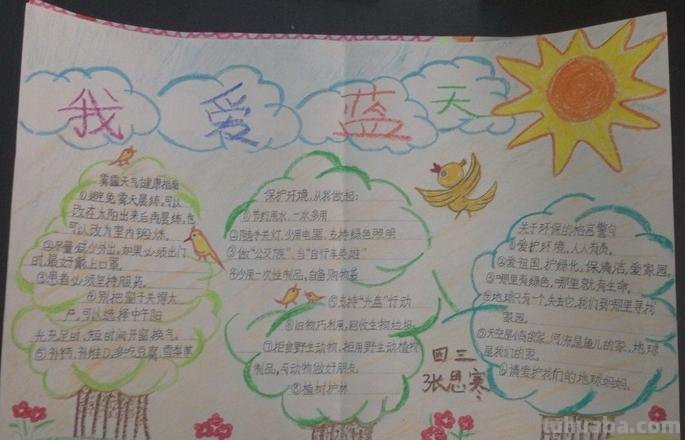 我爱蓝天
雾霾天气健康指南
①避免雾天晨练,可以
改在太阳出来后再晨练,也
可以改为室内锻炼。
②尽量减少外出,如果必须出门
时,最好戴上口罩。
③患者必须坚持服药。
④别把窗子关得太
严,可以选择中午阳
光充足时,短时间开窗换气。
⑤补钙、补维D,多吃豆腐、雪梨等
保护环境,从我做起:
①节约用水,一水多用
②随手关灯,少用电器,支持绿色照明
③做“公交族”,当“自行车英雄”
④少用一次性制品,自备购物篮
⑤支持“光盘”行动
⑥旧物巧利用,回收生物垃圾
⑦拒食野生动物,拒用野生动植物
制品,与动物做好朋友
⑧植树护林
四三
张思寒
关于环保的格言警句
①爱护环境,人人有责。
②爱祖国,护绿化,保清洁,爱家园。
③哪里有绿色,哪里就有生命。
④地球只有一个,失去它,我们到哪里寻找
家园。
⑤天空是小鸟的家,河流是鱼儿的家,地球
是我们的家。
⑥请爱护我们的地球妈妈。
tuhuaba.com